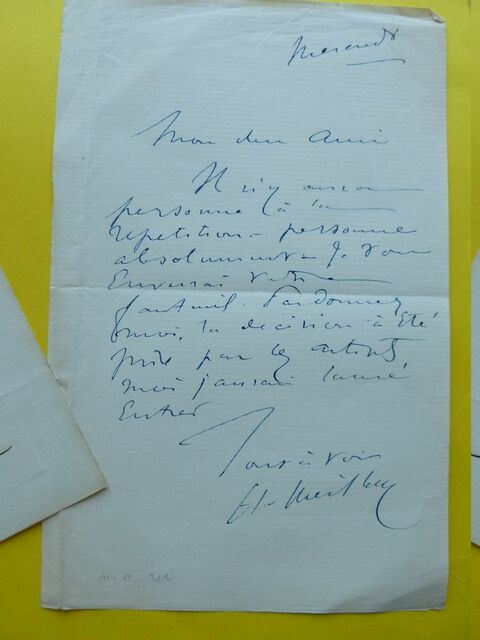 Mercredi
Mon cher Ami
Il n'y aura
personne à la
repetition - personne
absolument - Je vous
Enverrai votre
fauteuil. Pardonnez
moi, la décision à été
prise par les artistes
moi j'aurais laissé
Entrer
Tout à vous
H. Meilhac